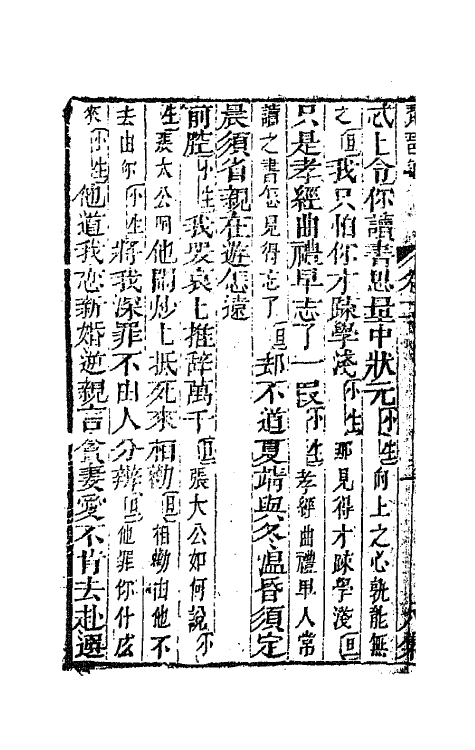 忒上合你讀書思量中狀元小生向上之心孰能無
之旦我只怕你才踈學淺小生那見得才踈學淺旦
只是孝經曲禮早忘了一叚小生孝經曲禮早人常
讀之書怎見得忘了旦却不道夏凊與冬温昏須定
晨須省親在遊怎遠
前腔小生我哭哀上推辭萬千旦張太公如何說小
生張太公呵他鬧炒上抵死來相勸旦相勸由他不
去由你小生將我深罪不由人分辨旦他罪你什庅
來小生他道我恋新婚逆親言貪妻愛不肯去赴選